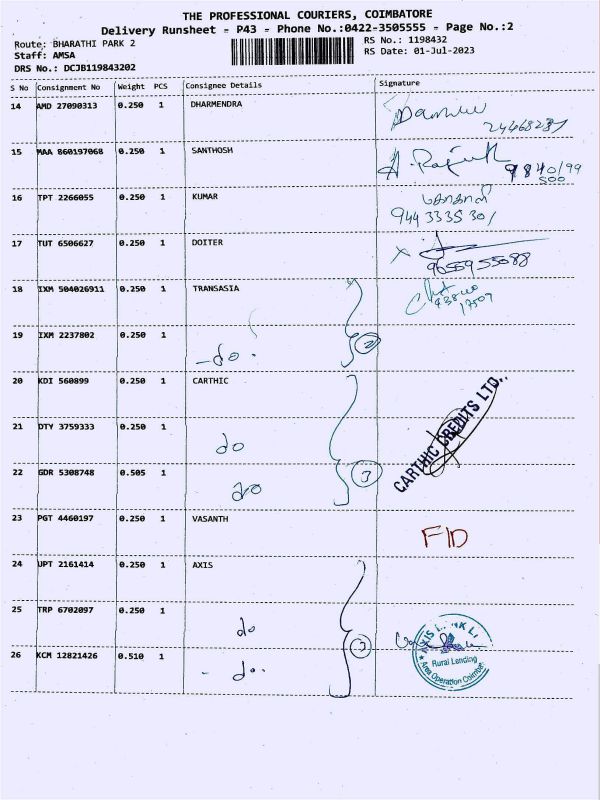 THE PROFESSIONAL COURIERS, COIMBATORE
Delivery Runsheet = P43 = Phone No.:0422-3505555 = Page No.:2
Route: BHARATHI PARK 2
RS No.: 1198432
Staff: AMSA
RS Date: 01-Jul-2023
DRS No.: DCJB119843202
S No Consignment No Weight PCS Consignee Details Signature
14 AMD 27090313 0.250 1 DHARMENDRA
15 MAA 860197068 0.250 1 SANTHOSH
16 TPT 2266055 0.250 1 KUMAR
944 3335 301
17 TUT 6506627 0.250 1 DOITER
9655955088
18 IXM 504026911 0.250 1 TRANSASIA
19 IXM 2237802 0.250 1 -do.
20 KDI 560899 0.250 1 CARTHIC
CARTHIC CREDITS LTD.,
21 DTY 3759333 0.250 1 do
22 GDR 5308748 0.505 1 do
3
23 PGT 4460197 0.250 1 VASANTH
24 UPT 2161414 0.250 1 AXIS
25 TRP 6702097 0.250 1 do
3
26 KCM 12821426 0.510 1 - do.
Rural Lending
Area Operation